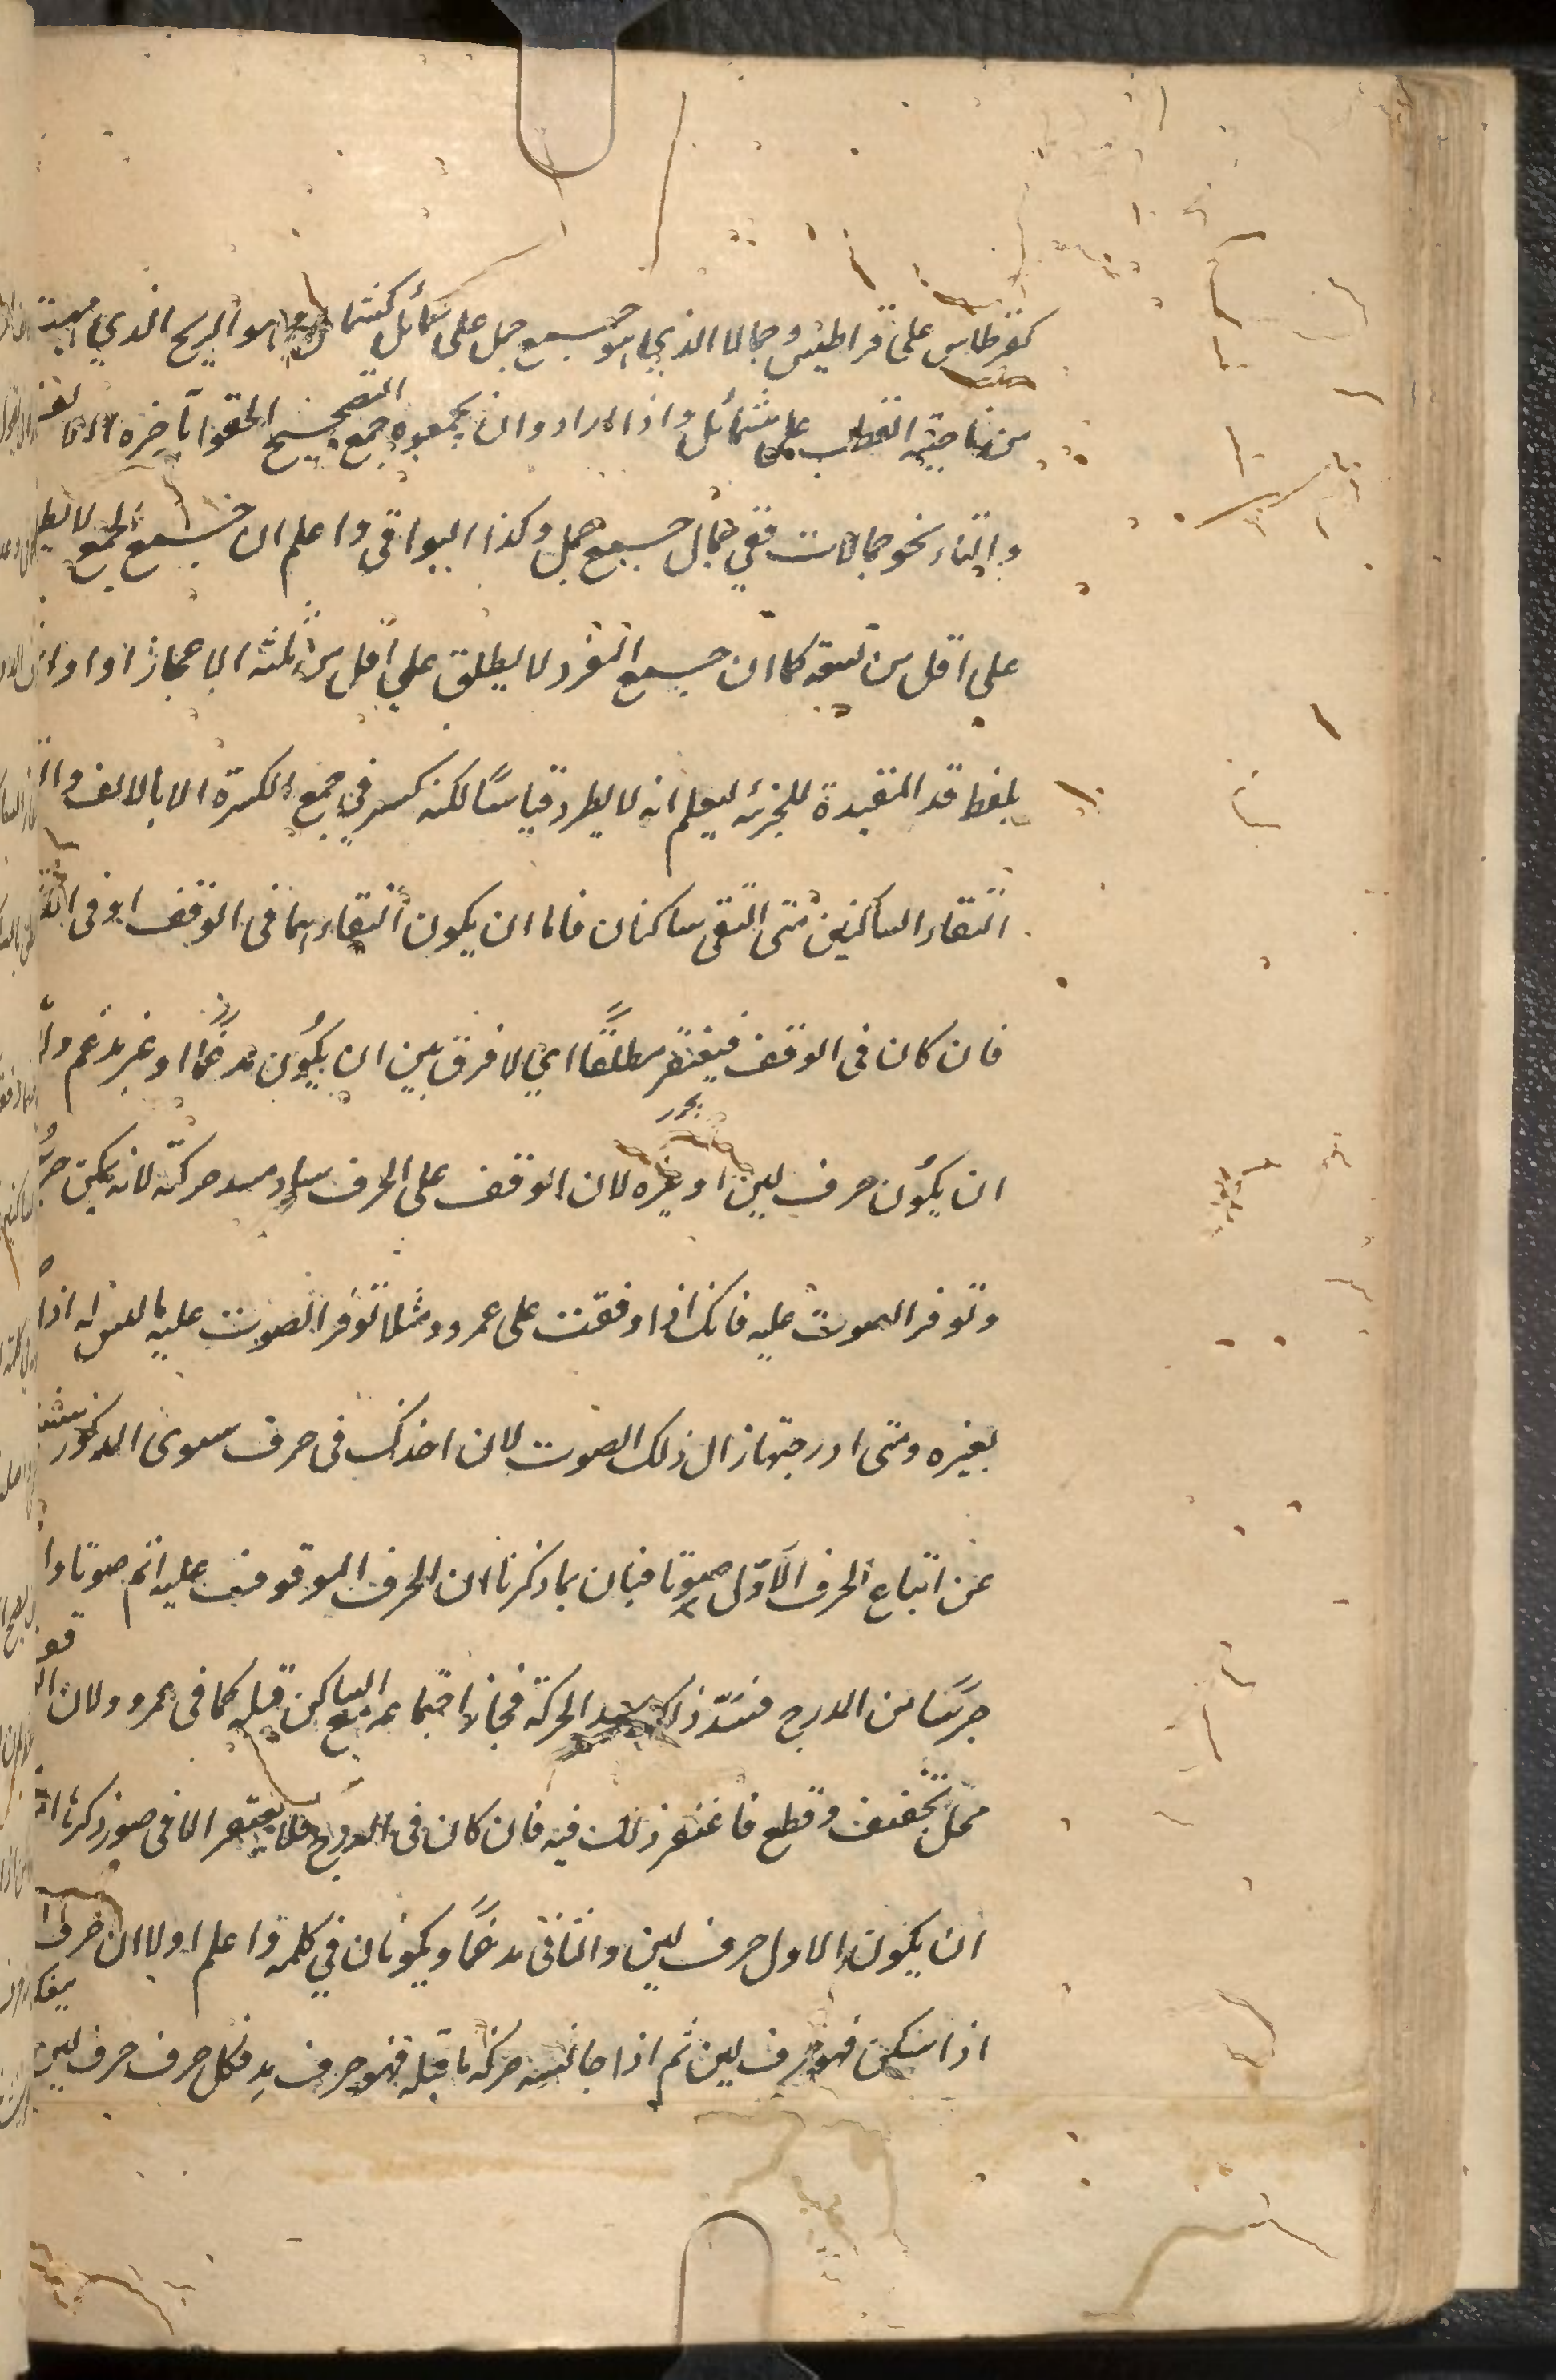 كقرطاس على قراطيس وجمالا الذي هو جمع جمل على شمائل كشمال وهو الريح الذي مهبته
من ناحية القطب على شمائل واذا ارادوا ان يجمعوه جمع التصحيح الحقوا بآخره الالف
والتاء نحو جمالات ففي جمال جمع جمل وكذا البواقي واعلم ان جمع الجمع لا يطلق
على اقل من تسعة كما ان جمع المفرد لا يطلق على اقل من ثلثة الا مجازا
بلفظ قد المفيدة للجزئه ليعلم انه لا يطرد قياسا لكنه كثير في جمع الكسرة الا بالالف والتاء
التقاء الساكنين متى التقى ساكنان فاما ان يكون التقاءهما في الوقف او في
فان كان في الوقف فيغتفر مطلقا اي لا فرق بين ان يكون مدغما او غير مدغم ولا
ان يكون حرف لين او غيره لان الوقف على الحرف ساد مسد حركته لانه يمكن جرس
وتوفر الصوت عليه فانك اذا وقفت على عمرو مثلا توفر الصوت عليه ما ليس له اذا
بغيره ومتى ادرجتها زال ذلك الصوت لان اخذك في حرف سوى المذكور
عن اتباع الحرف الاول صوتا فبان بما ذكرنا ان الحرف الموقوف عليه اتم صوتا وا
جرسا من المدرج فسد ذلك مسد الحركة فجاز اجتماعه مع الساكن قبله كما في عمرو ولان الو
محل تخفيف وقطع فاغتفر ذلك فيه فان كان في الدرج فلا يغتفر الا في صور ذكرنا
ان يكون الاول حرف لين والثاني مدغما ويكونان في كلمة واعلم اولا ان حرف
اذا سكن فهو حرف لين ثم اذا جانسه حركة ما قبله فهو حرف مد فكل حرف حرف لين